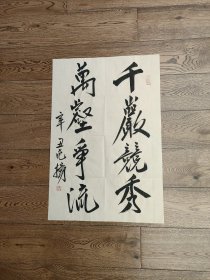 千巖競秀
萬壑爭流
辛丑